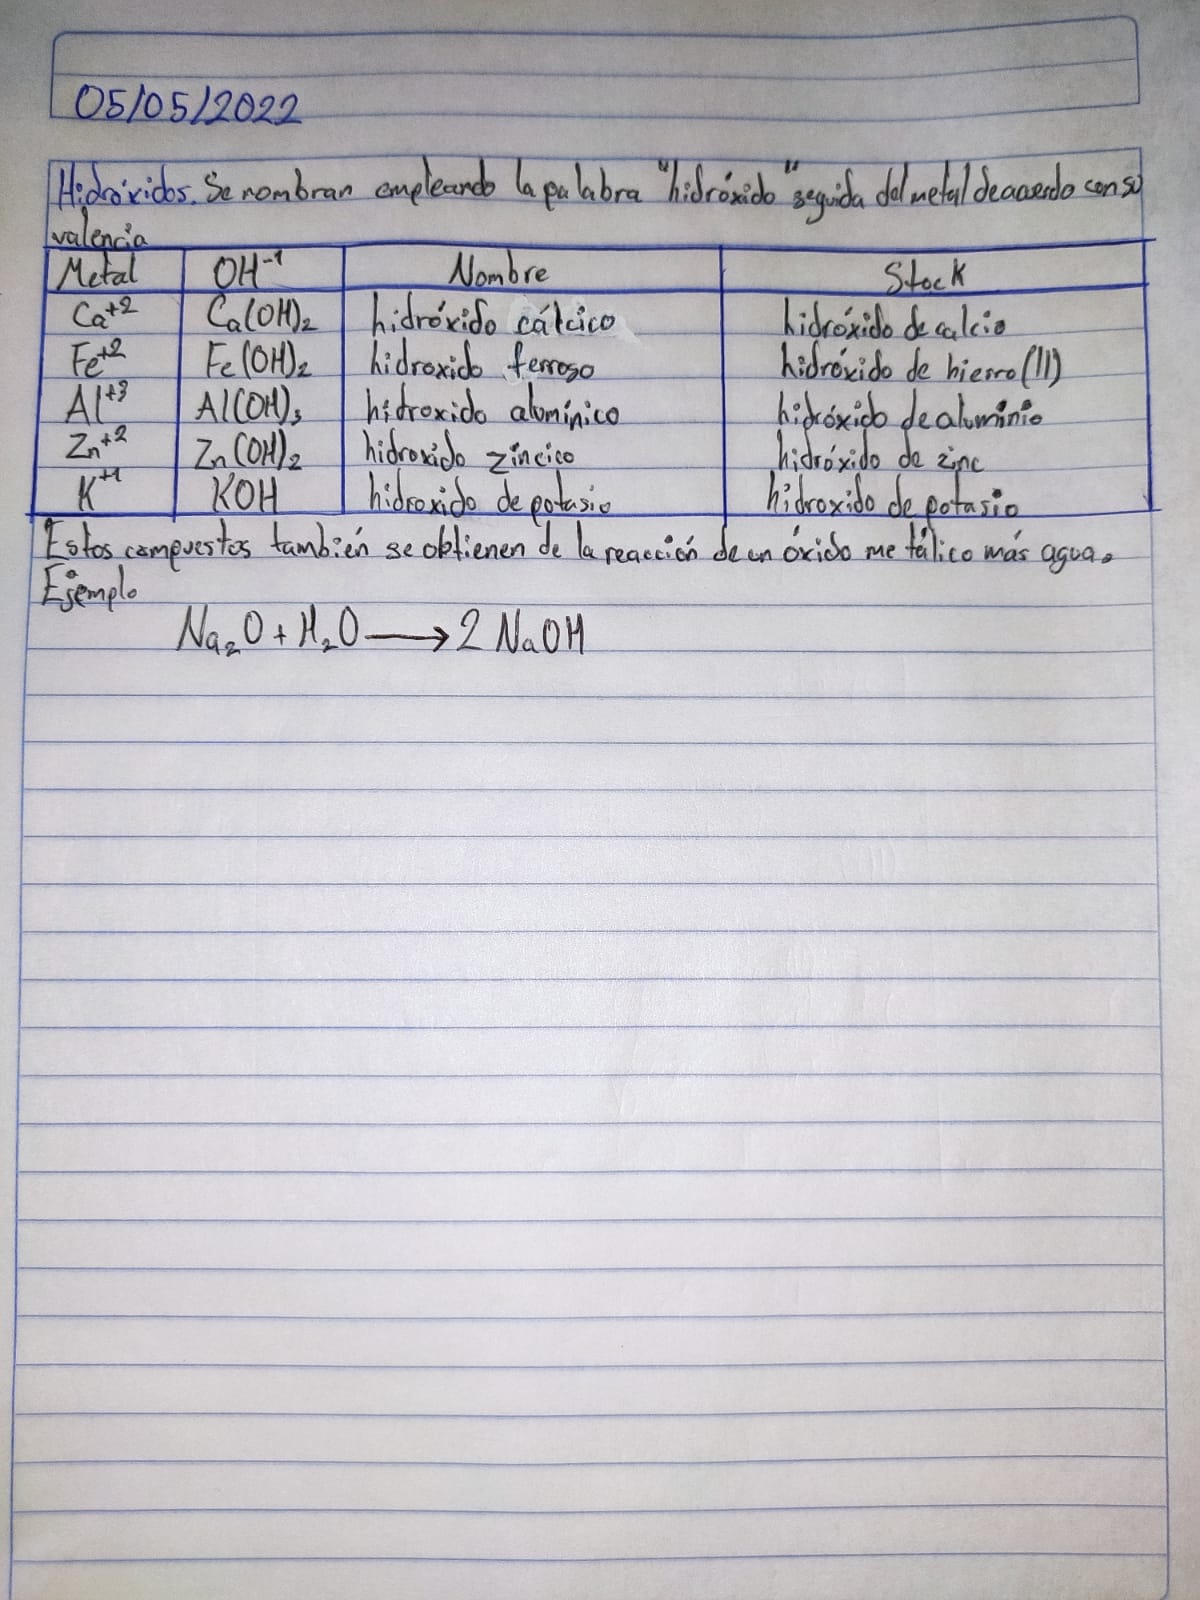 05/05/2022
Hidróxidos. Se nombran empleando la palabra "hidróxido" seguida del metal de acuerdo con su
valencia
Metal OH⁻¹ Nombre Stock
Ca⁺² Ca(OH)₂ hidróxido cálcico hidróxido de calcio
Fe⁺² Fe(OH)₂ hidroxido ferroso hidróxido de hierro (II)
Al⁺³ Al(OH)₃ hidroxido alumínico hidróxido de aluminio
Zn⁺² Zn(OH)₂ hidroxido zíncico hidróxido de zinc
K⁺¹ KOH hidroxido de potasio hidroxido de potasio
Estos compuestos también se obtienen de la reacción de un óxido metálico más agua.
Ejemplo
Na₂O + H₂O ⟶ 2 NaOH